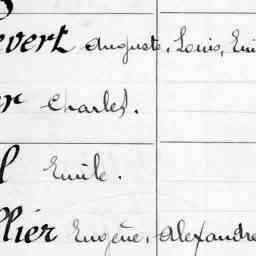 evert Auguste, Louis, Emi
er Charles.
l Emile.
llier Eugène, Alexandre